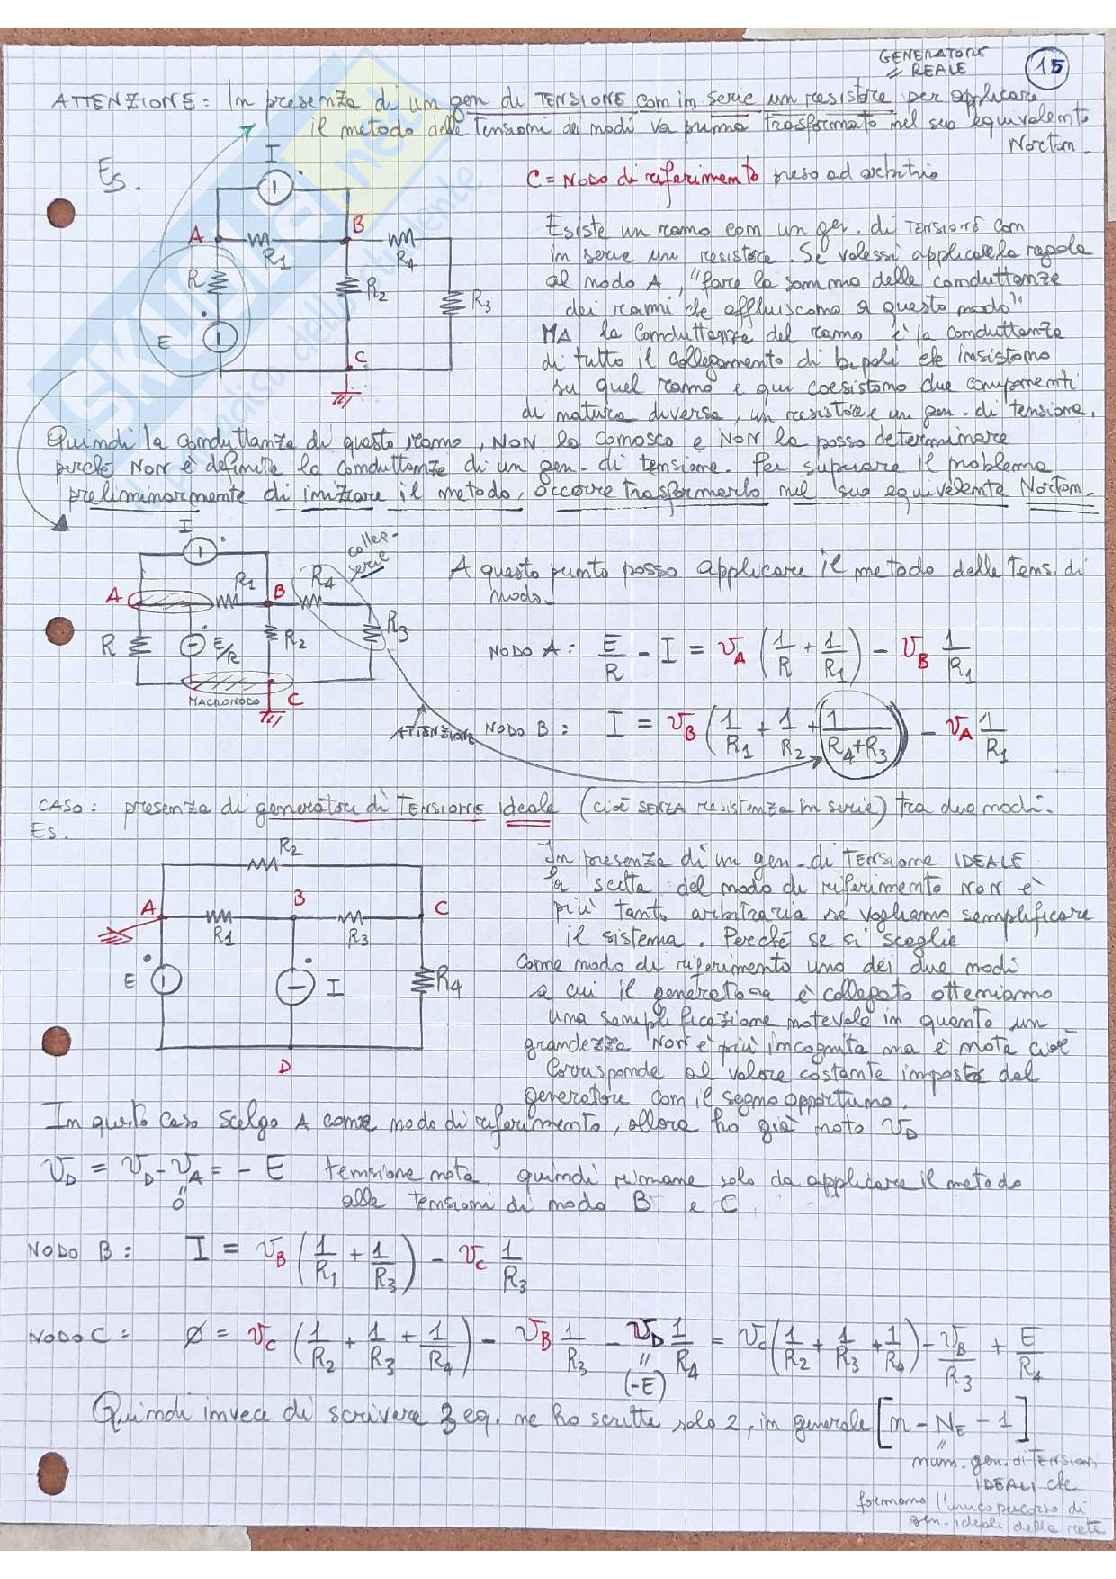 GENERATORE
= REALE
15
ATTENZIONE: In presenza di un gen di TENSIONE con in serie un resistore per applicare
il metodo delle Tensioni ai nodi va prima trasformato nel suo equivalente
Norton.
Es.
C = NODO di riferimento preso ad arbitrio
I
A
B
R1
R4
R
R2
R3
E
C
Esiste un ramo con un gen. di TENSIONE con
in serie un resistore. Se volessi applicare la regola
al nodo A, "fare la somma delle conduttanze
dei rami che affluiscono a questo nodo"
MA la Conduttanza del ramo è la conduttanza
di tutto il collegamento di bipoli che insistono
su quel ramo e qui coesistono due componenti
di natura diversa, un resistore e un gen. di tensione.
Quindi la conduttanza di questo ramo, NON la conosco e NON la posso determinare
perché NON è definita la conduttanza di un gen. di tensione. Per superare il problema
preliminarmente di iniziare il metodo, occorre trasformarlo nel suo equivalente Norton.
I
A
R1
B
R4
colleg.
serie
R
E/R
R2
R3
MACRONODO
C
A questo punto posso applicare il metodo delle tens. di
nodo.
NODO A: E/R - I = vA (1/R + 1/R1) - vB 1/R1
ATTENZIONE
NODO B: I = vB (1/R1 + 1/R2 + 1/(R4+R3)) - vA 1/R1
CASO: presenza di generatori di TENSIONE ideale (cioè SENZA resistenza in serie) tra due nodi.
Es.
R2
A
B
C
R1
R3
E
I
R4
D
In presenza di un gen. di Tensione IDEALE
la scelta del nodo di riferimento NON è
più tanto arbitraria se vogliamo semplificare
il sistema. Perché se si sceglie
come nodo di riferimento uno dei due nodi
a cui il generatore è collegato otteniamo
una semplificazione notevole in quanto un
grandezza NON è più incognita ma è nota cioè
corrisponde al valore costante imposto dal
generatore con il segno opportuno.
In questo caso scelgo A come nodo di riferimento, allora ho già noto vD
vD = vD - vA = - E tensione nota quindi rimane solo da applicare il metodo
"
0
alle tensioni di nodo B e C.
NODO B: I = vB (1/R1 + 1/R3) - vC 1/R3
NODO C: Ø = vC (1/R2 + 1/R3 + 1/R4) - vB 1/R3 - vD 1/R4 = vC (1/R2 + 1/R3 + 1/R4) - vB/R3 + E/R4
"
(-E)
Quindi invece di scrivere 3 eq. ne ho scritte solo 2, in generale [n - NE - 1]
"
num. gen. di TENSIONI
IDEALI che
formano l'unico percorso di
gen. ideali della rete